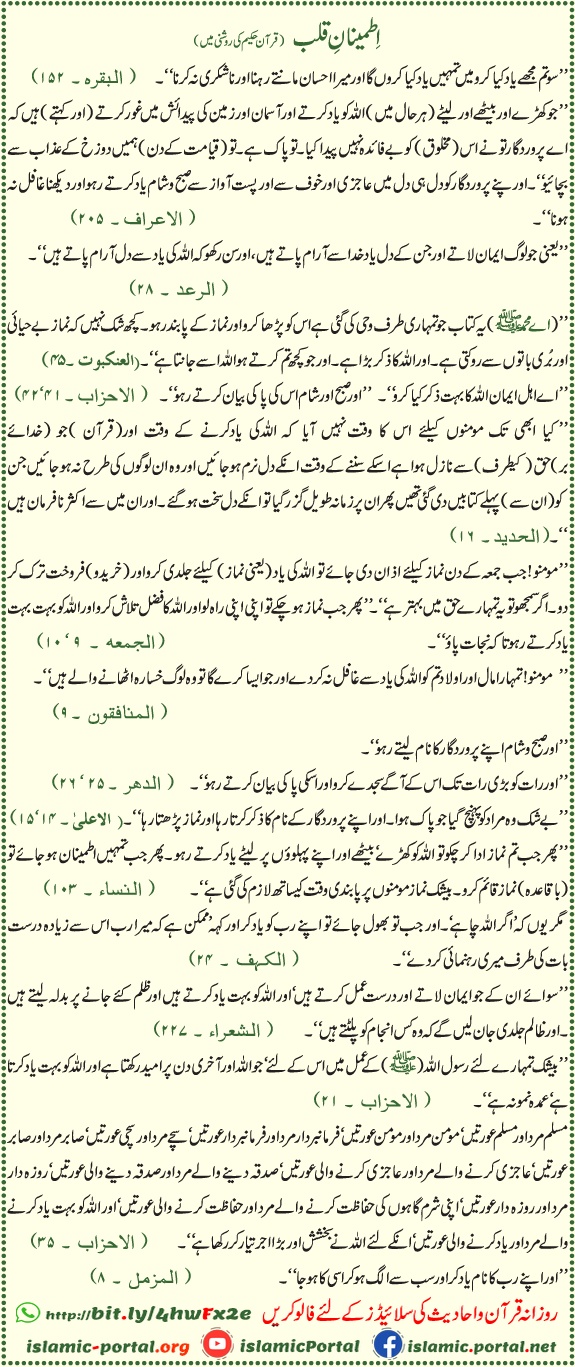 اِطمینانِ قلب (قرآن حکیم کی روشنی میں)
’’سو تم مجھے یاد کیا کرو میں تمہیں یاد کیا کروں گا اور میرا احسان مانتے رہنا اور ناشکری نہ کرنا‘‘۔ (البقرہ ۔ ۱۵۲)
’’جو کھڑے اور بیٹھے اور لیٹے (ہر حال میں) اللہ کو یاد کرتے اور آسمان اور زمین کی پیدائش میں غور کرتے (اور کہتے) ہیں کہ
اے پروردگار تو نے اس (مخلوق) کو بے فائدہ نہیں پیدا کیا۔ تو پاک ہے۔ تو (قیامت کے دن) ہمیں دوزخ کے عذاب سے
بچائیو‘‘۔ اور اپنے پروردگار کو دل ہی دل میں عاجزی اور خوف سے اور پست آواز سے صبح و شام یاد کرتے رہو اور دیکھنا غافل نہ
ہونا‘‘۔ (الاعراف ۔ ۲۰۵)
’’یعنی جو لوگ ایمان لاتے اور جن کے دل یادِ خدا سے آرام پاتے ہیں، اور سن رکھو کہ اللہ کی یاد سے دل آرام پاتے ہیں‘‘۔
(الرعد ۔ ۲۸)
’’(اے محمد ﷺ) یہ کتاب جو تمہاری طرف وحی کی گئی ہے اس کو پڑھا کرو اور نماز کے پابند رہو۔ کچھ شک نہیں کہ نماز بے حیائی
اور بُری باتوں سے روکتی ہے۔ اور اللہ کا ذکر بڑا ہے۔ اور جو کچھ تم کرتے ہو اللہ اسے جانتا ہے‘‘۔ (العنکبوت ۔ ۴۵)
’’اے اہل ایمان اللہ کا بہت ذکر کیا کرو‘‘۔ ’’اور صبح اور شام اس کی پاکی بیان کرتے رہو‘‘۔ (الاحزاب ۔ ۴۱‘۴۲)
’’کیا ابھی تک مومنوں کیلئے اس کا وقت نہیں آیا کہ اللہ کی یاد کرنے کے وقت اور (قرآن) جو (خدائے
بر) حق (کیطرف) سے نازل ہوا ہے اسکے سننے کے وقت انکے دل نرم ہو جائیں اور وہ ان لوگوں کی طرح نہ ہو جائیں جن
کو (ان سے) پہلے کتابیں دی گئی تھیں پھر ان پر زمانہ طویل گزر گیا تو انکے دل سخت ہو گئے۔ اور ان میں سے اکثر نافرمان ہیں
‘‘۔ (الحدید ۔ ۱۶)
’’مومنو! جب جمعہ کے دن نماز کیلئے اذان دی جائے تو اللہ کی یاد (یعنی نماز) کیلئے جلدی کرو اور (خرید و) فروخت ترک کر
دو۔ اگر سمجھو تو یہ تمہارے حق میں بہتر ہے‘‘۔ ’’پھر جب نماز ہو چکے تو اپنی اپنی راہ لو اور اللہ کا فضل تلاش کرو اور اللہ کو بہت بہت
یاد کرتے رہو تا کہ نجات پاؤ‘‘۔ (الجمعہ ۔ ۹‘۱۰)
’’مومنو! تمہارا مال اور اولاد تم کو اللہ کی یاد سے غافل نہ کر دے اور جو ایسا کرے گا تو وہ لوگ خسارہ اٹھانے والے ہیں‘‘۔
(المنافقون ۔ ۹)
’’اور صبح و شام اپنے پروردگار کا نام لیتے رہو‘‘۔
’’اور رات کو بڑی رات تک اس کے آگے سجدے کرو اور اسکی پاکی بیان کرتے رہو‘‘۔ (الدھر ۔ ۲۵‘۲۶)
’’بے شک وہ مراد کو پہنچ گیا جو پاک ہوا۔ اور اپنے پروردگار کے نام کا ذکر کرتا رہا اور نماز پڑھتا رہا‘‘۔ (الاعلیٰ ۔ ۱۴‘۱۵)
’’پھر جب تم نماز ادا کر چکو تو اللہ کو کھڑے‘ بیٹھے اور اپنے پہلوؤں پر لیٹے یاد کرتے رہو۔ پھر جب تمہیں اطمینان ہو جائے تو
(باقاعدہ) نماز قائم کرو۔ بیشک نماز مومنوں پر پابندی وقت کیساتھ لازم کی گئی ہے‘‘۔ (النساء ۔ ۱۰۳)
مگر یوں کہ ’اگر اللہ چاہے‘۔ اور جب تو بھول جائے تو اپنے رب کو یاد کر اور کہہ‘ ممکن ہے کہ میرا رب اس سے زیادہ درست
بات کی طرف میری رہنمائی کر دے‘‘۔ (الکہف ۔ ۲۴)
’’سوائے ان کے جو ایمان لاتے اور درست عمل کرتے ہیں‘ اور اللہ کو بہت یاد کرتے ہیں اور ظلم کئے جانے پر بدلہ لیتے ہیں
۔ اور ظالم جلدی جان لیں گے کہ وہ کس انجام کو پلٹتے ہیں‘‘۔ (الشعراء ۔ ۲۲۷)
’’بیشک تمہارے لئے رسول اللہ (ﷺ) کے عمل میں اس کے لئے‘ جو اللہ اور آخری دن پر امید رکھتا ہے اور اللہ کو بہت یاد کرتا
ہے‘ عمدہ نمونہ ہے‘‘۔ (الاحزاب ۔ ۲۱)
مسلم مرد اور مسلم عورتیں‘ مومن مرد اور مومن عورتیں‘ فرمانبردار مرد اور فرمانبردار عورتیں‘ سچے مرد اور سچی عورتیں‘ صابر مرد اور صابر
عورتیں‘ عاجزی کرنے والے مرد اور عاجزی کرنے والی عورتیں‘ صدقہ دینے والے مرد اور صدقہ دینے والی عورتیں‘ روزہ دار
مرد اور روزہ دار عورتیں‘ اپنی شرم گاہوں کی حفاظت کرنے والے مرد اور حفاظت کرنے والی عورتیں‘ اور اللہ کو بہت یاد کرنے
والے مرد اور یاد کرنے والی عورتیں‘ انکے لئے اللہ نے بخشش اور بڑا اجر تیار کر رکھا ہے‘‘۔ (الاحزاب ۔ ۳۵)
’’اور اپنے رب کا نام یاد کر اور سب سے الگ ہو کر اسی کا ہو جا‘‘۔ (المزمل ۔ ۸)
روزانہ قرآن و احادیث کی سلائیڈز کے لئے فالو کریں http://bit.ly/4hwFx2e
islamic-portal.org islamicPortal islamic.portal.net